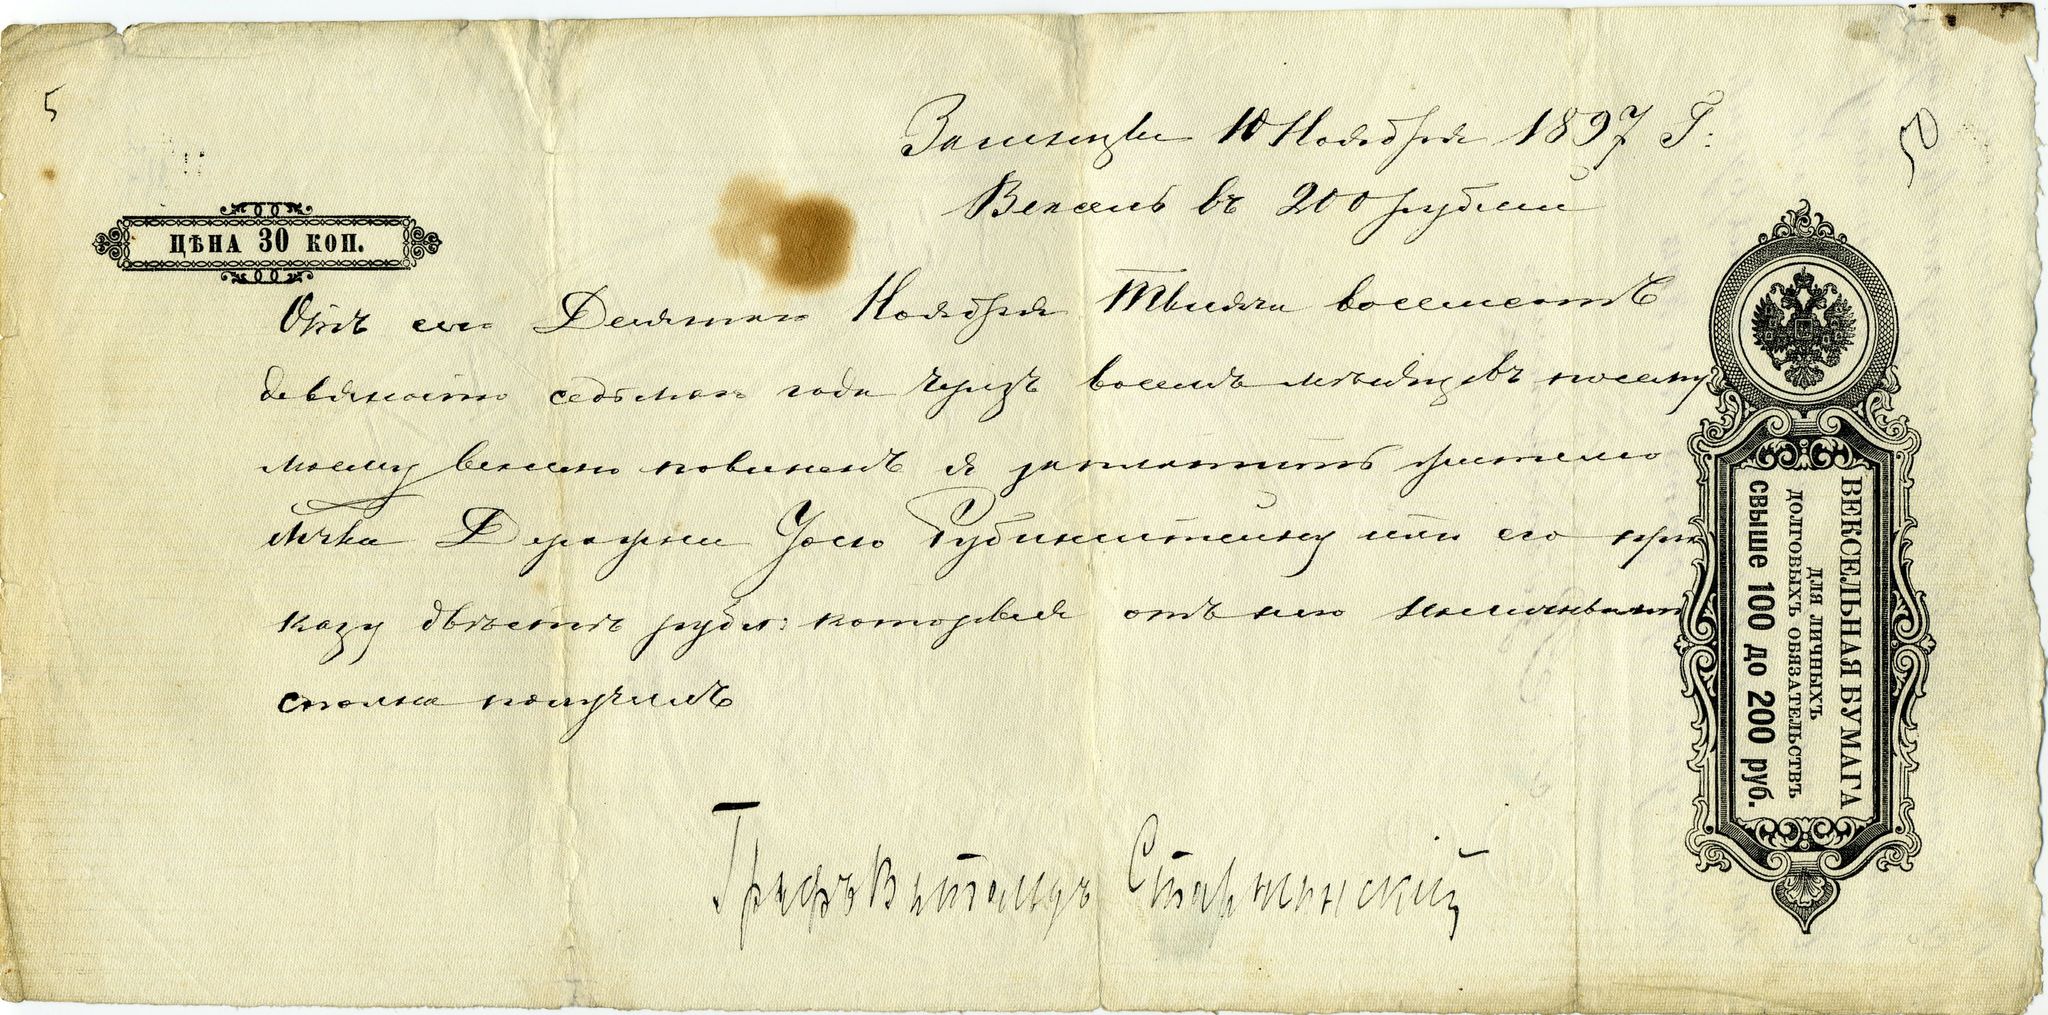 5
50
10 Ноября 1897 Г:
Вексель въ 200 рублей
ЦѢНА 30 КОП.
Отъ сего Десятого Ноября Тысяча восемсотъ
девяносто седьмого года черезъ восемь мѣсяцовъ по сему
моему векселю повиненъ я заплатить жителю
мѣст. Деражни Рубинштейну или его при
казу двѣсти рубл: которыя отъ него наличными
сполна получилъ
Графъ Витольдъ Старжинский
ВЕКСЕЛЬНАЯ БУМАГА
ДЛЯ ЛИЧНЫХЪ
ДОЛГОВЫХЪ ОБЯЗАТЕЛЬСТВЪ
СВЫШЕ 100 ДО 200 РУБ.